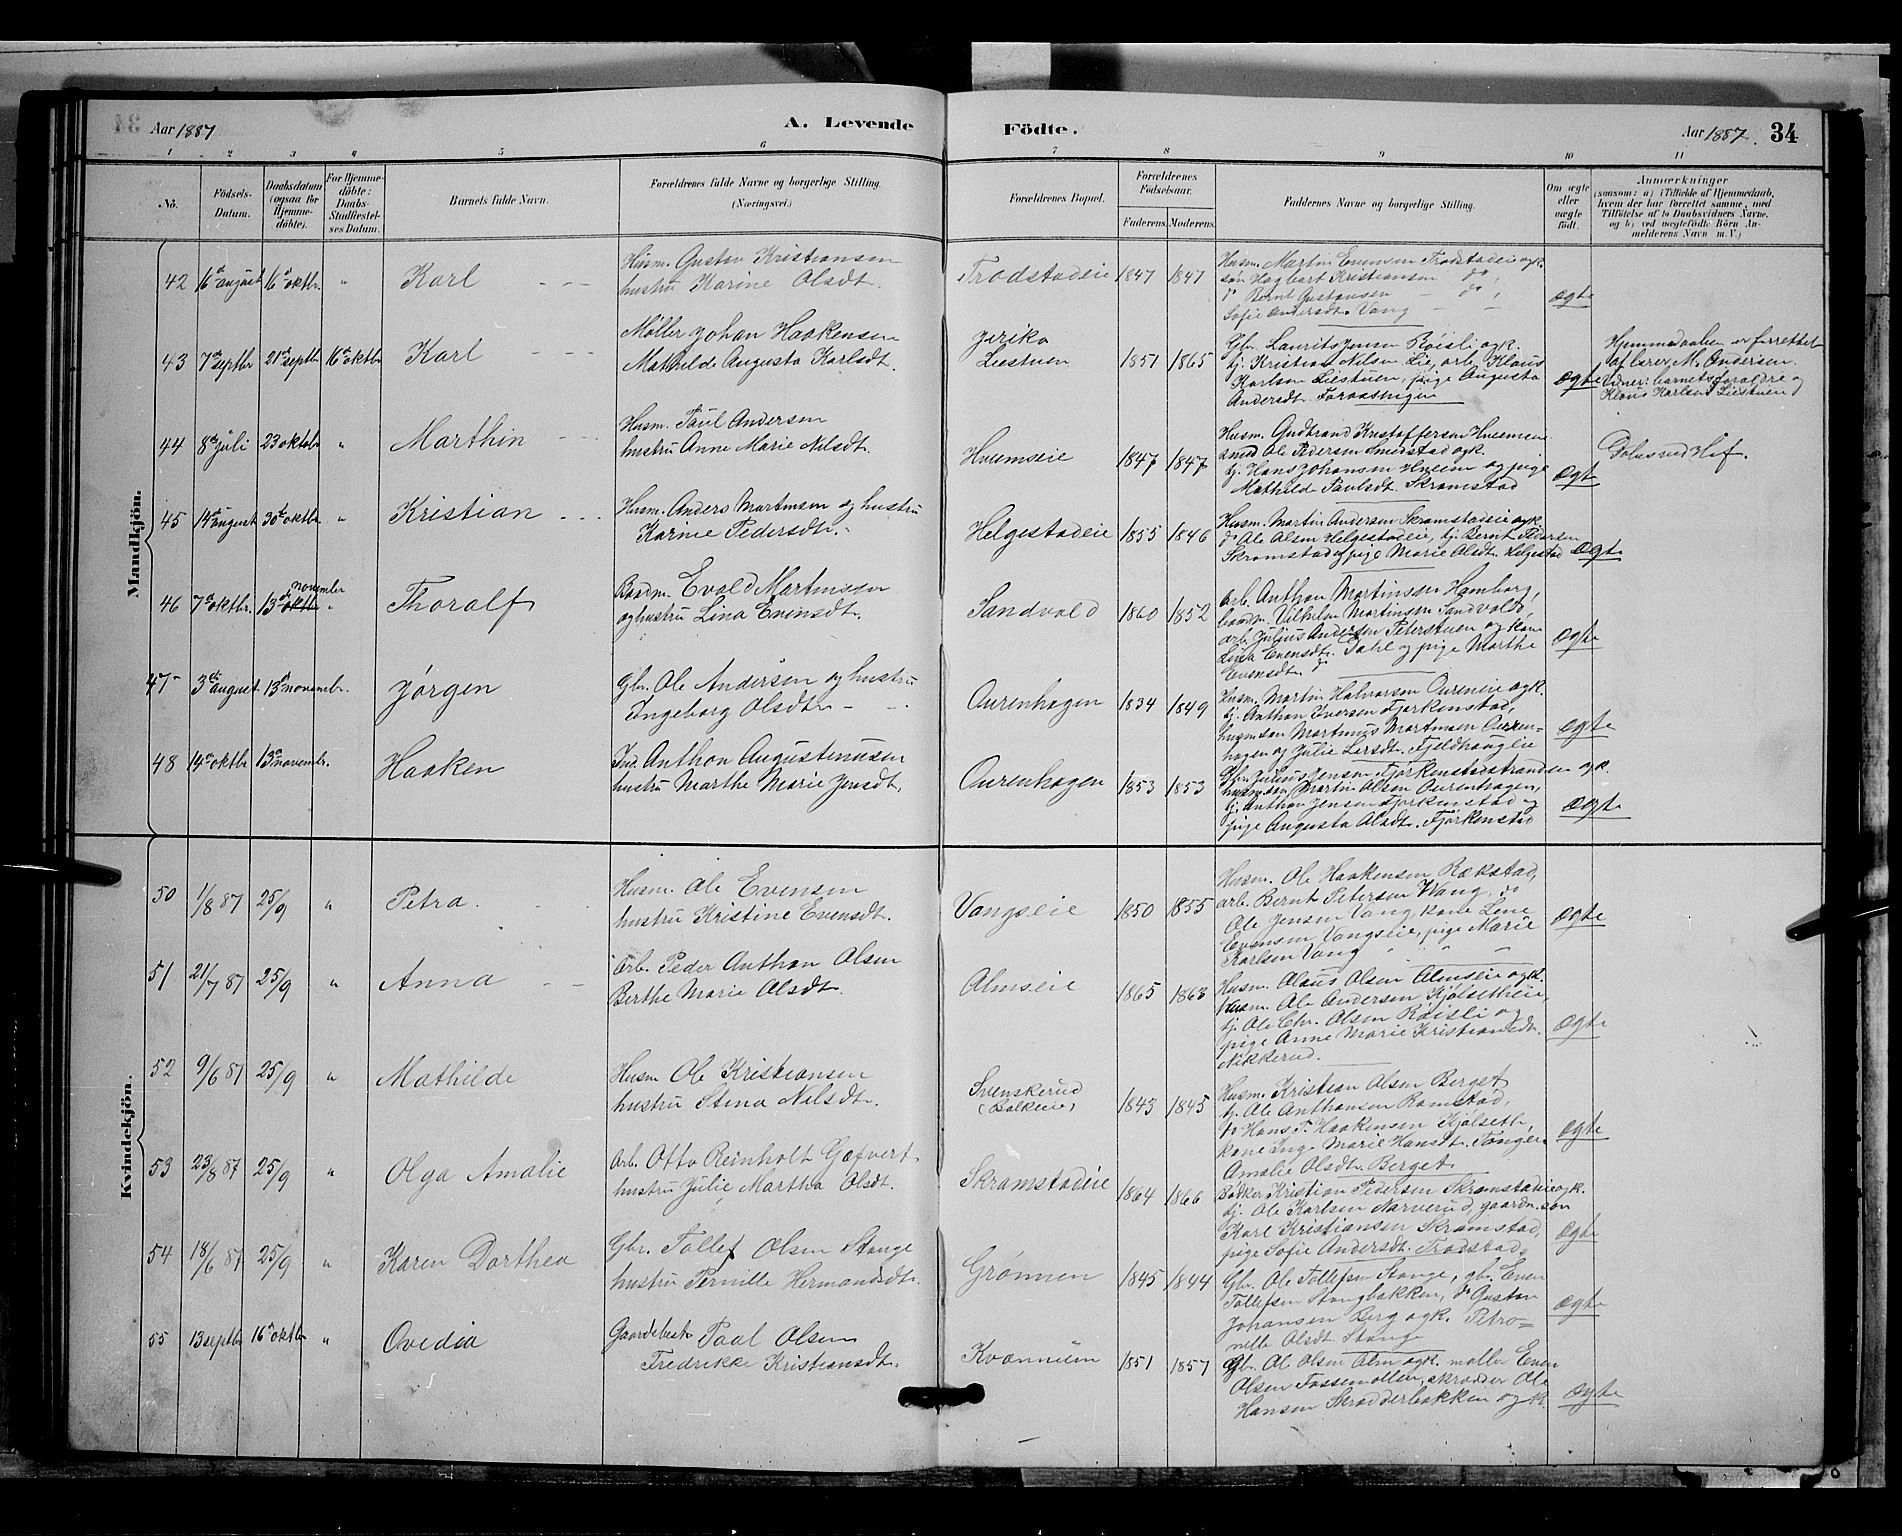 Aar 1887
A. Levende
Fødte.
Aar 1887.
34
1 2 3 4 5 6 7 8 9 10 11
No.
Födsels-
Datum.
Daabsdatum
(ogsaa for
Hjemme-
döbte).
For Hjemme-
döbte:
Daabs-
Stadfæstel-
ses Datum.
Barnets fulde Navn.
Forældrenes fulde Navne og borgerlige Stilling.
(Næringsvei.)
Forældrenes Bopæl.
Forældrenes
Födselsaar.
Faderens. Moderens.
Faddernes Navne og borgerlige Stilling.
Om ægte
eller
uægte
født.
Anmærkninger
(saasom: a) i Tilfælde af Hjemmedaab,
hvem der har forrettet samme, med
Tilföielse af to Daabsvidners Navne,
og b) ved uægtefödte Börn An-
melderens Navn m. V.)
Mandkjön.
42 16de august 16de oktbr. " Karl
Husm. Gustav Kristiansen
hustru Karine Olsdt.
Trodstadeie 1847 1847
Husm. Martin Evensen Trodstadeie ogk.
søn Hagbart Kristiansen do,
do Bernt Gustavsen do,
Sofie Andersdt. Vang
ægte
43 7de septbr 21de septbr 16de oktbr Karl
Møller Johan Haakensen
Mathilde Augusta Karlsdt.
Jeriko
Liestuen 1851 1865
Gbr. Laurits Jensen Röisli ogk.
tj. Kristian Nilsen Lie, arb. Klaus
Karlsen Liestuen, pige Augusta
Andersdt.
ægte
Hjemmedaaben er forrettet
af lærer M. Andersen.
Vidner: barnets forældre og
Klaus Karlsen Liestuen
44 8de juli 23 oktobr " Marthin
Husm. Paul Andersen
hustru Anne Marie Nilsdt.
Hveemseie 1847 1847
Husm. Gudbrand Kristoffersen Hveemeie
smed Ole Pedersen Smedstad ogk.
tj. Hans Johansen Hveem og pige
Mathilde Paulsdt. Skramstad
ægt
Døbes ved Hof.
45 14de august 30te oktbr. " Kristian
Husm. Anders Martinsen og hustru
Karine Pedersdt.
Helgestadeie 1855 1846
Husm. Martin Andersen Skramstadeie ogk.
do Ole Olsen Helgestadeie, tj. Bernt Pedersen
Skramstad og pige Marie Olsdt. Helgestad
ægte
46 7de oktbr. 13de oktbr november " Thoralf
Baadm. Evald Martinssen
og hustru Lina Evensdt.
Sandvold 1860 1852
Arb. Anthon Martinsen Hamborg,
baadm. Vilhelm Martinsen Sandvold,
arb. Julius Andersen Peterstuen og kone
Lina Evensdt. Dahl og pige Marthe
Evensdt. do
ægte
47 3die august 13de novembr. Jørgen
Gbr. Ole Andersen og hustru
Ingeborg Olsdt
Aurenhagen 1834 1849
Husm. Martin Halvorsen Aureneie ogk.
tj. Anthon Iversen Fjørkenstad,
husmsøn Martinus Martinsen Auren-
hagen og Julie Larsdt. Fjeldhaugeie
ægte
48 14de oktbr 13de novembr. Haaken
Ind. Anthon Augustinusen
hustru Marthe Marie Jensdt.
Aurenhagen 1853 1853
Gbr. Julius Jensen Fjørkenstadstranden ogk.
husmsøn Martin Olsen Aurenhagen,
tj. Anthon Jensen Fjørkenstad og
pige Augusta Olsdt. Fjørkenstad
ægte
Kvindekjön.
50 1/8 87 25/9 " Petra.
Husm. Ole Evensen
hustru Kristine Evensdt.
Vangseie 1850 1855
Husm. Ole Haakensen Rækstad,
arb. Bernt Petersen Wang, do
Ole Jensen Vang, kone Lene
Evensen Vangseie, pige Marie
Karlsen Vang
ægte
51 21/7 87 25/9 " Anna
Arb. Peder Anthon Olsen
Berthe Marie Olsdt.
Almseie 1865 1863
Husm. Olaus Olsen Almseie ogk.
husm. Ole Andersen Kjølsetheie,
tj. Ole Chr. Olsen Røisli og
pige Anne Marie Kristiansdt.
Nikkerud.
ægte
52 9/6 87 25/9 " Mathilde
Husm Ole Kristiansen
hustru Stina Nilsdt.
Svenskerud
(Balkeeie) 1843 1845
Husm. Kristian Olsen Berget
tj. Ole Anthonsen Ramstad,
do Hans P. Haakensen Kjølseth,
kone Inge Marie Hansdt. Tangen
Amalie Olsdt. Berget.
ægte
53 23/8 87 25/9 " Olga Amalie
Arb. Otto Reinholt Gæfvert
hustru Julie Martha Olsdt.
Skramstadeie 1864 1866
Bødker Kristian Pedersen Skramstadeie ogk.
tj. Ole Karlsen Narverud, gaardm.søn
Karl Kristiansen Skramstad,
pige Sofie Andersdt. Trodstad.
ægte
54 18/6 87 25/9 " Karen Dorthea
Gbr. Tollef Olsen Stange
hustru Pernille Hermandsdt.
Grønnen 1845 1844
Gbr. Ole Tollefsen Stange, gbr. Even
Tollefsen Stangbakken, do Gustav
Johansen Berg ogk. Petro-
nille Olsdt. Stange
ægte
55 13 septbr 16de oktbr " Ovedia
Gaardbest. Paul Olsen
Fredrikke Kristiansdt.
Kvannum 1851 1857
Gbr. Ole Olsen Alm ogk. møller Even
Olsen Fossemøllen, skrædder Ole
Hansen Skrædderbakken og k.
ægte